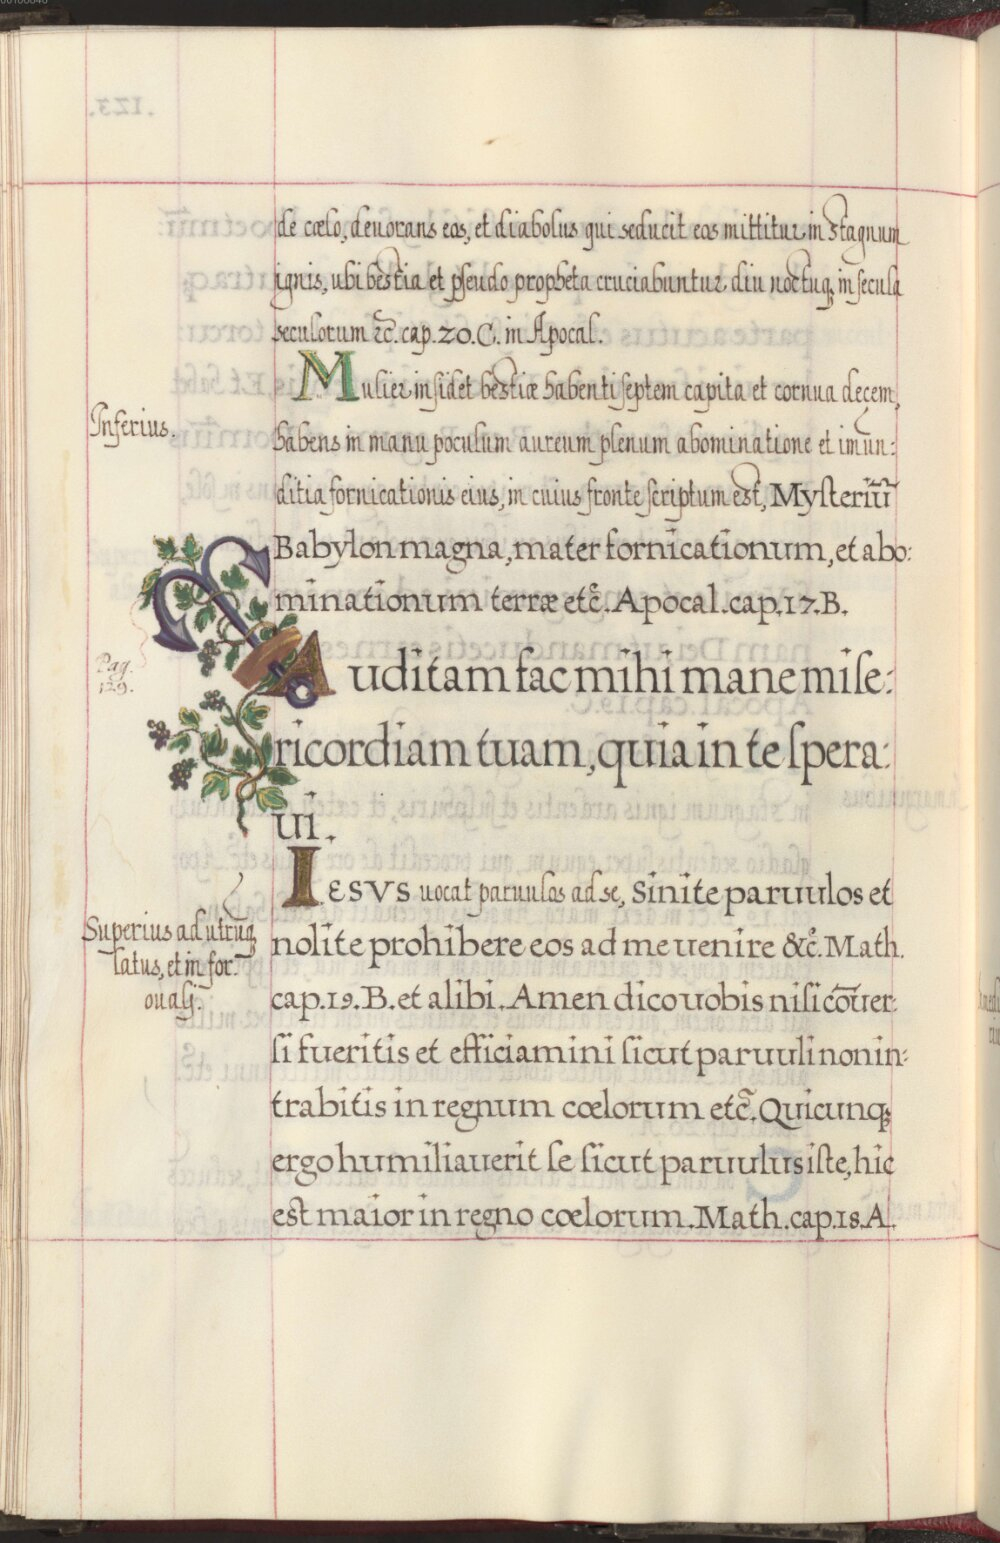 de cœlo, deuorans eos, et diabolus qui seducit eos mittitur in stagnum
ignis, ubi bestia et pseudo propheta cruciabuntur diu noctuq; in secula
seculorum &c̄. cap. 20. C. in Apocal.
Inferius.
Mulier insidet bestiæ habenti septem capita et cornua decem,
habens in manu poculum aureum plenum abominatione et imun:
ditia fornicationis eius, in cuius fronte scriptum est, Mysteriū
Babylon magna, mater fornicationum, et abo:
minationum terræ etc̄. Apocal. cap. 17. B.
Pag.
129.
Auditam fac mihi mane mise:
ricordiam tuam, quia in te spera:
ui.
Iesvs uocat paruulos ad se, Sinite paruulos et
Superius ad utrūq;
latus, et in for:
ouali.
nolite prohibere eos ad me uenire &c̄. Math.
cap. 19. B. et alibi. Amen dico uobis nisi cōuer:
si fueritis et efficiamini sicut paruuli non in:
trabitis in regnum cœlorum etc̄. Quicunq;
ergo humiliauerit se sicut paruulus iste, hic
est maior in regno cœlorum. Math. cap. 18. A.